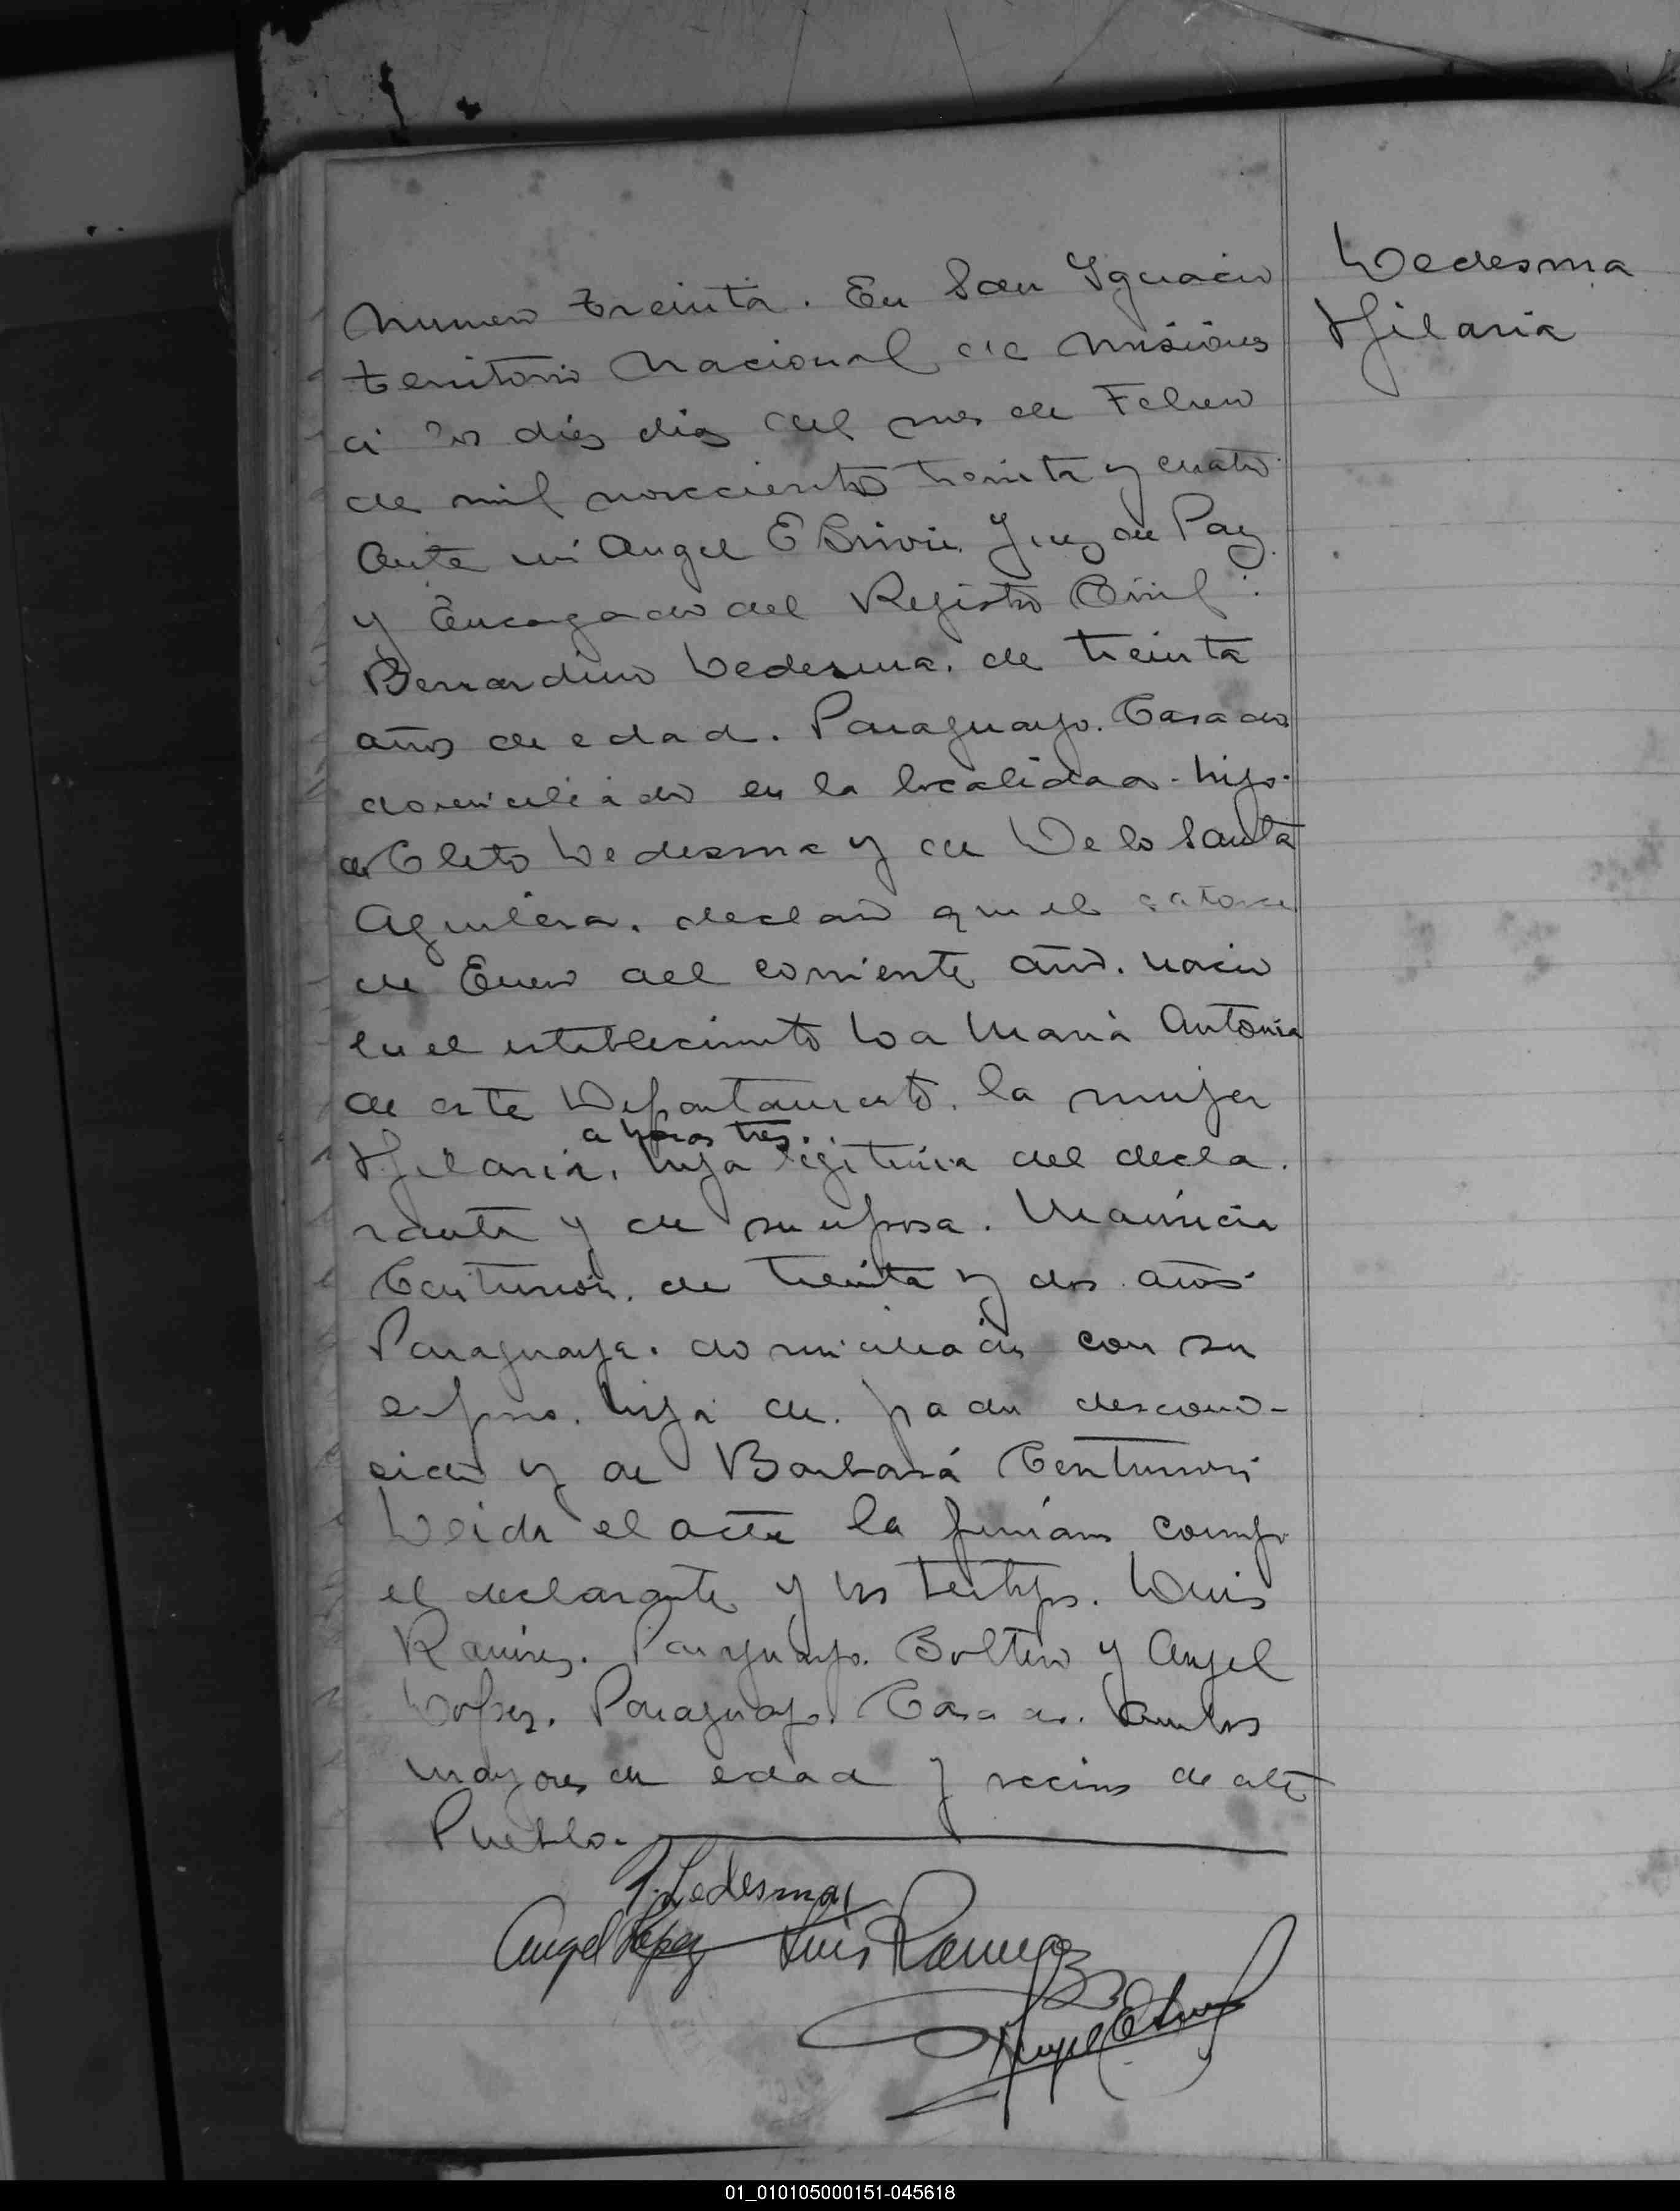 Ledesma
Hilaria
Numero treinta. En San Ygnacio
territorio Nacional de Misiones
á los diéz dias del mes de Febrero
de mil novecientos treinta y cuatro
Ante mi Angel E Juez de Paz
y Encargado del Registro Civil:
Bernardino Ledesma. de treinta
años de edad. Paraguayo. Casado
domiciliado en la localidad. hijo
de Cleto Ledesma y de De lo Santa
Aguilera. declaró que el catorce
de Enero del corriente año. nacio
en el establecimiento La Maria Antonia
de este Departamento. la mujer
a horas tres.
Hilaria. hija legitima del decla.
rante y de su esposa. Mauricia
Centurion. de treinta y dos años.
Paraguaya. domiciliada con su
esposo. hija de padre descono-
cido y de Barbará Centurion
Leida el acta la firman comigo
el declarante y los testigos. Luis
Ramirez. Paraguayo. Soltero y Angel
Lopez. Paraguayo. Casado. Ambos
mayores de edad y vecinos de este
Pueblo.
Ledesma
Angel Lopez Luis Ramirez
Angel E
01_010105000151-045618